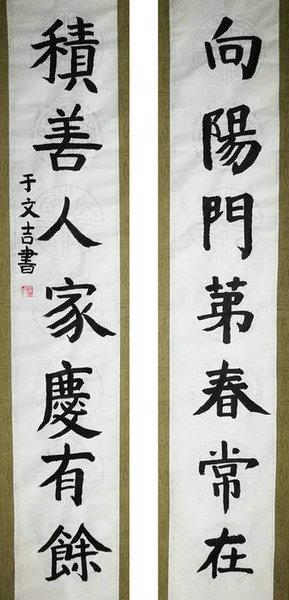 向陽門苐春常在
積善人家慶有餘
于文吉書